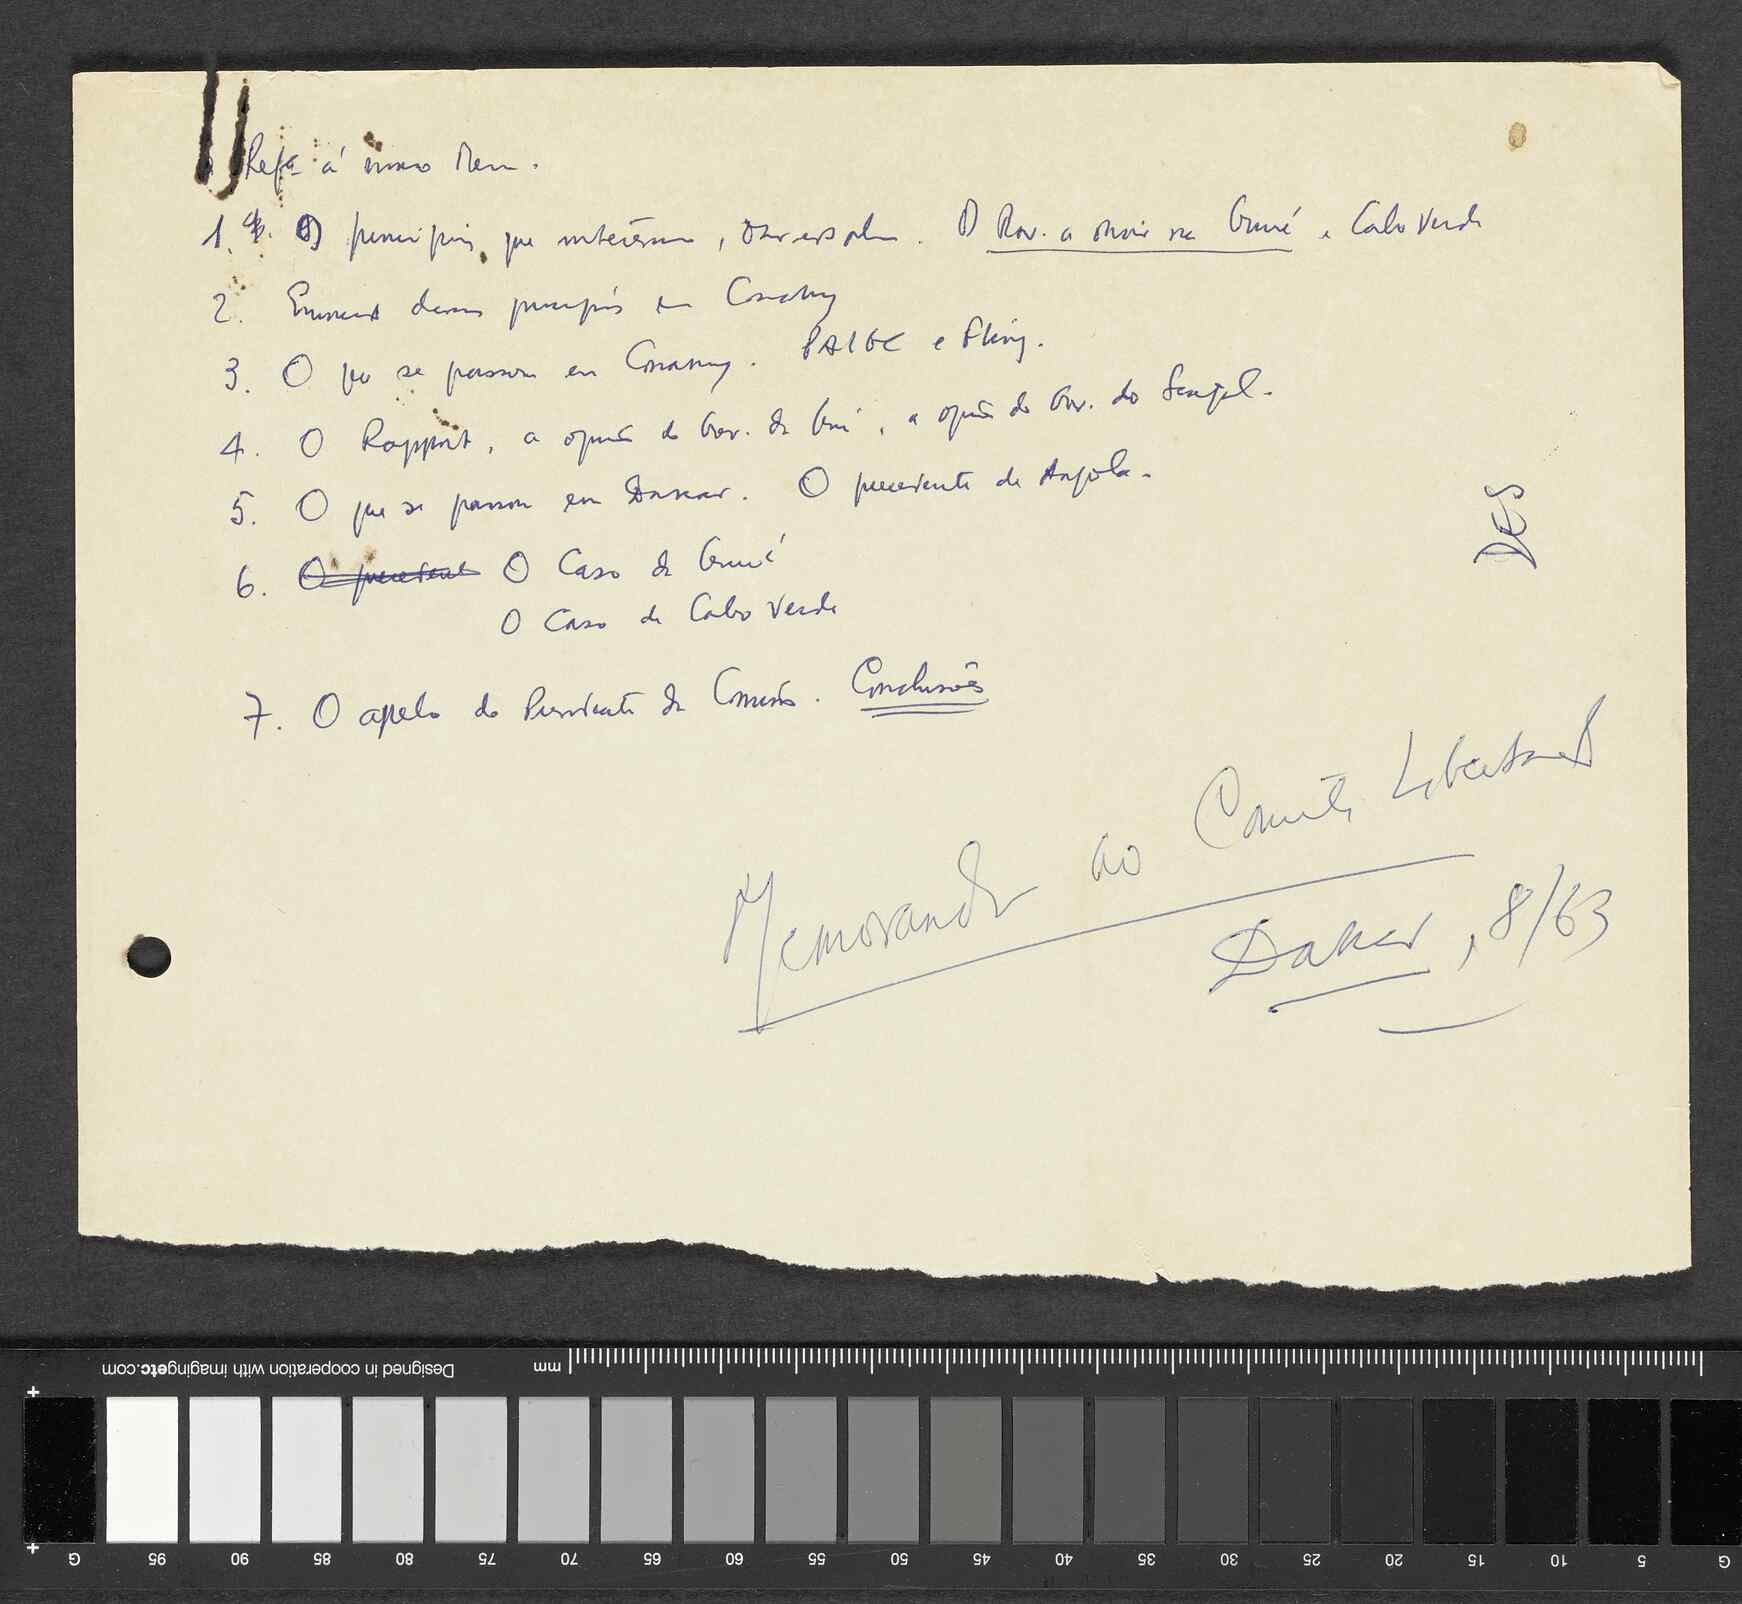 Refª à nosso Mem.
1. Os princípios que nortearam, O Gov. a chair na Guiné e Cabo Verde
2. princípios em Conakry
3. O que se passou em Conakry. PAIGC e Fling.
4. O Rapport, a opinião do Gov. da Guiné, a opinião do Gov. do Senegal.
5. O que se passou em Dakar. O precedente de Angola.
6. O precedente O Caso da Guiné
O Caso de Cabo Verde
7. O apelo do Presidente da Comissão. Conclusões
DES
Memorando ao Comité Libertação
Dakar, 8/63
mm
Designed in cooperation with imagingetc.com
G 95 90 85 80 75 70 65 60 55 50 45 40 35 30 25 20 15 10 5 G